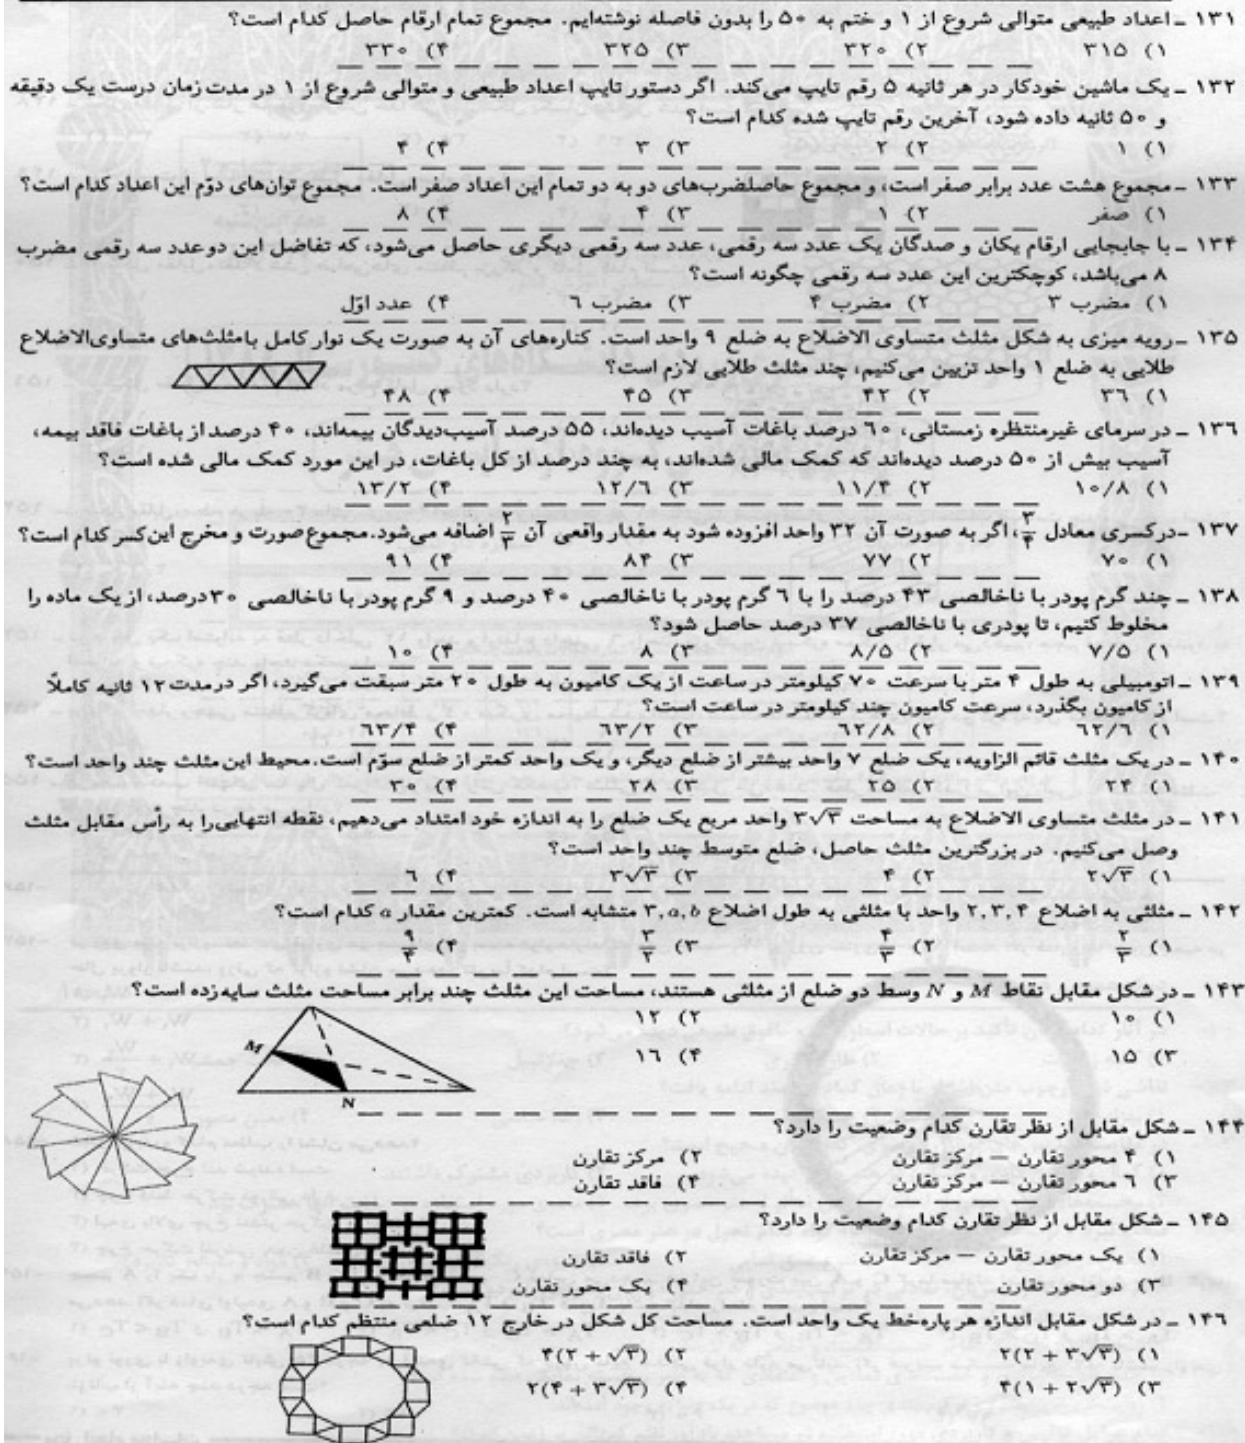 ۱۳۱ ـ اعداد طبیعی متوالی شروع از ۱ و ختم به ۵۰ را بدون فاصله نوشته‌ایم. مجموع تمام ارقام حاصل کدام است؟
۱) ۳۱۵ ۲) ۳۲۰ ۳) ۳۲۵ ۴) ۳۳۰
۱۳۲ ـ یک ماشین خودکار در هر ثانیه ۵ رقم تایپ می‌کند. اگر دستور تایپ اعداد طبیعی و متوالی شروع از ۱ در مدت زمان درست یک دقیقه
و ۵۰ ثانیه داده شود، آخرین رقم تایپ شده کدام است؟
۱) ۱ ۲) ۲ ۳) ۳ ۴) ۴
۱۳۳ ـ مجموع هشت عدد برابر صفر است، و مجموع حاصلضرب‌های دو به دو تمام این اعداد صفر است. مجموع توان‌های دوّم این اعداد کدام است؟
۱) صفر ۲) ۱ ۳) ۴ ۴) ۸
۱۳۴ ـ با جابجایی ارقام یکان و صدگان یک عدد سه رقمی، عدد سه رقمی دیگری حاصل می‌شود، که تفاضل این دو عدد سه رقمی مضرب
۸ می‌باشد، کوچکترین این عدد سه رقمی چگونه است؟
۱) مضرب ۳ ۲) مضرب ۴ ۳) مضرب ۶ ۴) عدد اوّل
۱۳۵ ـ رویه میزی به شکل مثلث متساوی الاضلاع به ضلع ۹ واحد است. کناره‌های آن به صورت یک نوار کامل با مثلث‌های متساوی‌الاضلاع
طلایی به ضلع ۱ واحد تزیین می‌کنیم، چند مثلث طلایی لازم است؟
۱) ۳۶ ۲) ۴۲ ۳) ۴۵ ۴) ۴۸
۱۳۶ ـ در سرمای غیرمنتظره زمستانی، ۶۰ درصد باغات آسیب دیده‌اند، ۵۵ درصد آسیب‌دیدگان بیمه‌اند، ۴۰ درصد از باغات فاقد بیمه،
آسیب بیش از ۵۰ درصد دیده‌اند که کمک مالی شده‌اند، به چند درصد از کل باغات، در این مورد کمک مالی شده است؟
۱) ۱۰/۸ ۲) ۱۱/۴ ۳) ۱۲/۶ ۴) ۱۳/۲
۱۳۷ ـ در کسری معادل ۳/۴، اگر به صورت آن ۳۲ واحد افزوده شود به مقدار واقعی آن ۲/۳ اضافه می‌شود. مجموع صورت و مخرج این کسر کدام است؟
۱) ۷۰ ۲) ۷۷ ۳) ۸۴ ۴) ۹۱
۱۳۸ ـ چند گرم پودر با ناخالصی ۴۳ درصد را با ۶ گرم پودر با ناخالصی ۴۰ درصد و ۹ گرم پودر با ناخالصی ۳۰ درصد، از یک ماده را
مخلوط کنیم، تا پودری با ناخالصی ۳۷ درصد حاصل شود؟
۱) ۷/۵ ۲) ۸/۵ ۳) ۸ ۴) ۱۰
۱۳۹ ـ اتومبیلی به طول ۴ متر با سرعت ۷۰ کیلومتر در ساعت از یک کامیون به طول ۲۰ متر سبقت می‌گیرد، اگر در مدت ۱۲ ثانیه کاملاً
از کامیون بگذرد، سرعت کامیون چند کیلومتر در ساعت است؟
۱) ۶۲/۶ ۲) ۶۲/۸ ۳) ۶۳/۲ ۴) ۶۳/۴
۱۴۰ ـ در یک مثلث قائم الزاویه، یک ضلع ۷ واحد بیشتر از ضلع دیگر، و یک واحد کمتر از ضلع سوّم است. محیط این مثلث چند واحد است؟
۱) ۲۴ ۲) ۲۵ ۳) ۲۸ ۴) ۳۰
۱۴۱ ـ در مثلث متساوی الاضلاع به مساحت ۳√۳ واحد مربع یک ضلع را به اندازه خود امتداد می‌دهیم، نقطه انتهایی را به رأس مقابل مثلث
وصل می‌کنیم. در بزرگترین مثلث حاصل، ضلع متوسط چند واحد است؟
۱) ۲√۳ ۲) ۴ ۳) ۳√۳ ۴) ۶
۱۴۲ ـ مثلثی به اضلاع ۲,۳,۴ واحد با مثلثی به طول اضلاع ۳,a,b متشابه است. کمترین مقدار a کدام است؟
۱) ۲/۳ ۲) ۴/۳ ۳) ۳/۲ ۴) ۹/۴
۱۴۳ ـ در شکل مقابل نقاط M و N وسط دو ضلع از مثلثی هستند، مساحت این مثلث چند برابر مساحت مثلث سایه‌زده است؟
۱) ۱۰ ۲) ۱۲
۳) ۱۵ ۴) ۱۶
M
N
۱۴۴ ـ شکل مقابل از نظر تقارن کدام وضعیت را دارد؟
۱) ۴ محور تقارن — مرکز تقارن ۲) مرکز تقارن
۳) ۶ محور تقارن — مرکز تقارن ۴) فاقد تقارن
۱۴۵ ـ شکل مقابل از نظر تقارن کدام وضعیت را دارد؟
۱) یک محور تقارن — مرکز تقارن ۲) فاقد تقارن
۳) دو محور تقارن ۴) یک محور تقارن
۱۴۶ ـ در شکل مقابل اندازه هر پاره‌خط یک واحد است. مساحت کل شکل در خارج ۱۲ ضلعی منتظم کدام است؟
۱) ۲(۲ + ۳√۳) ۲) ۴(۲ + √۳)
۳) ۴(۱ + ۲√۳) ۴) ۲(۴ + ۳√۳)